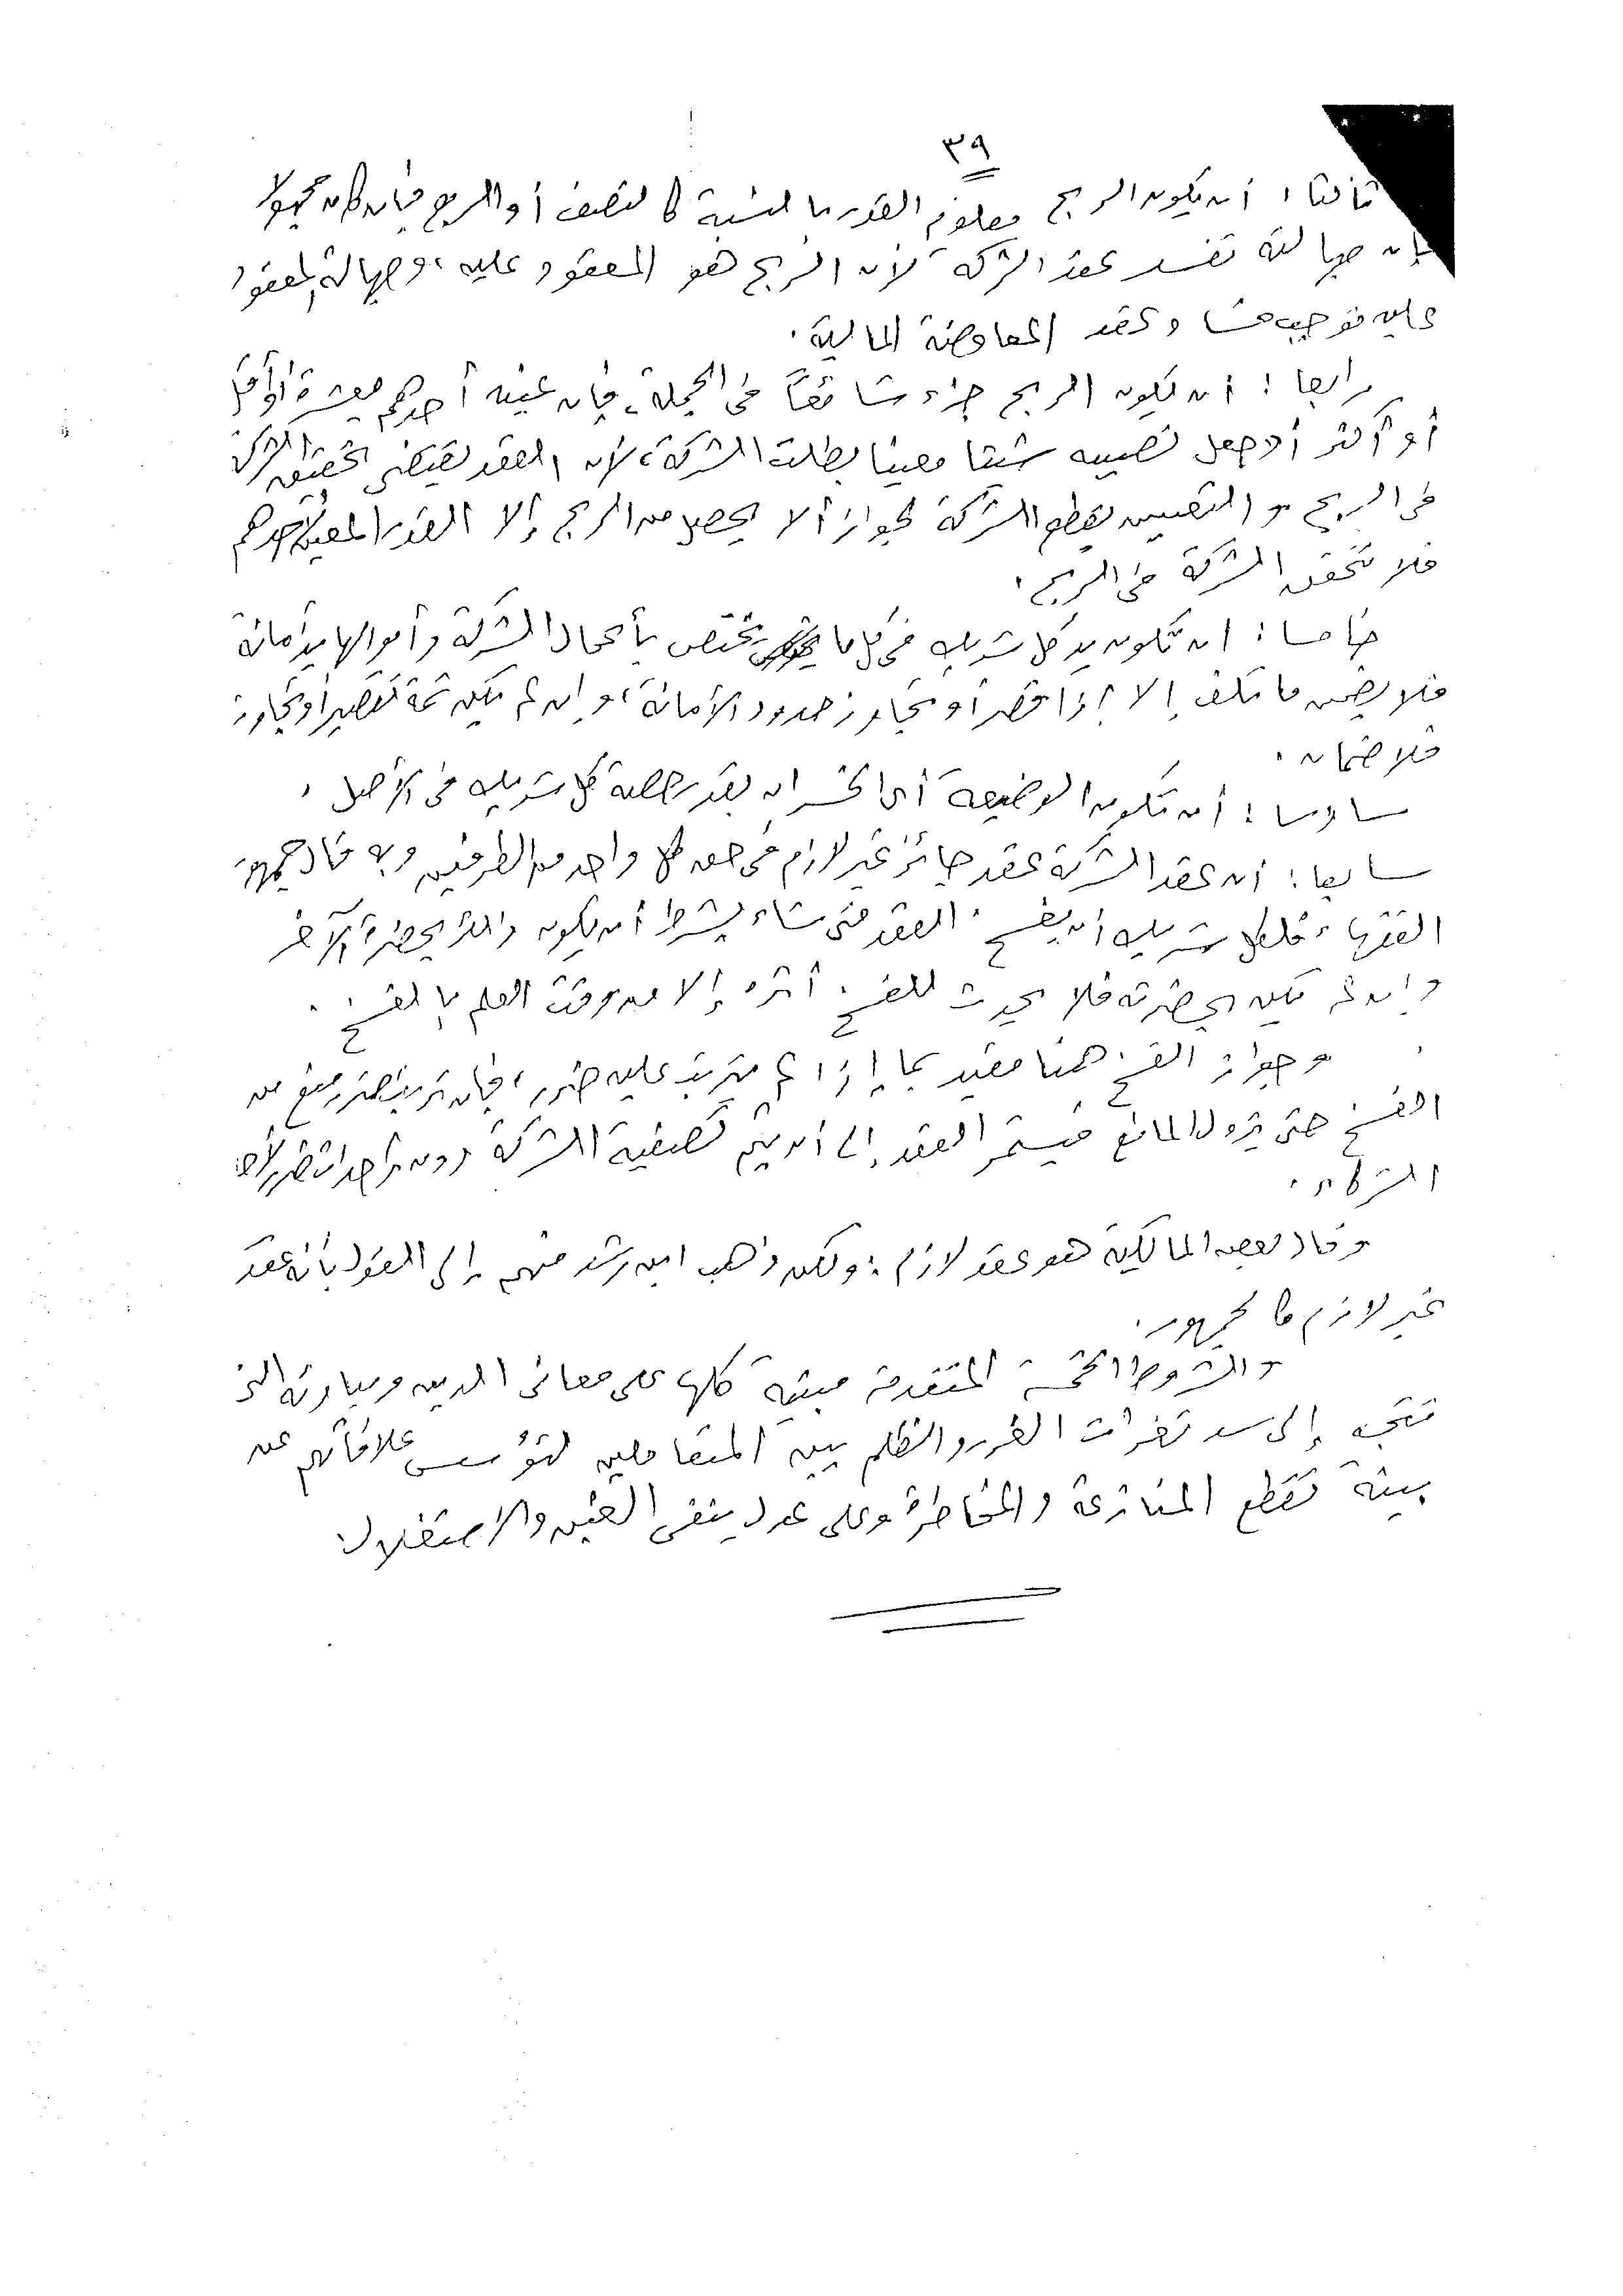 ٣٩
ثالثا : أن يكون الربح معلوم القدر بالنسبة كالنصف أو الربع فإن كان مجهولا
فإن جهالته تفسد عقد الشركة لأن الربح هو المعقود عليه ، وجهالة المعقود
عليه توجب فساد عقد المعاوضة المالية .
رابعا : أن يكون الربح جزء شائعاً في الجملة ، فإن عينه أحدهم بعشرة أو أقل
أو أكثر أو جعل نصيبه شيئا معينا بطلت الشركة ، لأن العقد يقتضى تحقق الشركة
في الربح والتعيين يقطع الشركة لجواز ألا يحصل من الربح إلا القدر المعين لأحدهم
فلا تتحقق الشركة في الربح .
خامسا : ان تكون يد كل شريك في كل ما يختص بأعمال الشركة وأموالها يد أمانة
فلا يضمن ما تلف إلا إذا قصر أو تجاوز حدود الأمانة ، وإن لم يكن ثمة تقصير أو تجاوز
فلا ضمان .
سادسا : أن تكون الوضيعة أى الخسران بقدر حصة كل شريك في الأصل .
سابعا : أن عقد الشركة عقد جائز غير لازم في حق كل واحد من الطرفين وبه قال جمهور
الفقهاء فلكل شريك أن يفسخ العقد متى شاء بشرط أن يكون ذلك بحضرة الآخر
وإن لم يكن بحضرته فلا يحدث للفسخ أثره إلا من وقت العلم بالفسخ .
وجواز الفسخ هنا مقيد بما إذا لم يترتب عليه ضرر ، فإن ترتب ضرر منع من
الفسخ حتى يزول المانع فيستمر العقد إلى أن يتم تصفية الشركة دون إحداث ضرر لأحد
الشركاء .
وقال بعض المالكية هو عقد لازم ، ولكن ذهب ابن رشد منهم إلى القول بأنه عقد
غير لازم كالجمهور .
والشروط الخمسة المتقدمة مبنية كلها على معانى الدين ومبادئه التى
تتجه إلى سد ثغرات الغرر والظلم بين المتعاملين لتؤسس علاقاتهم عن
بينة تقطع المنازعة والمخاطرة وعلى عدل ينفى الغبن والاستغلال .